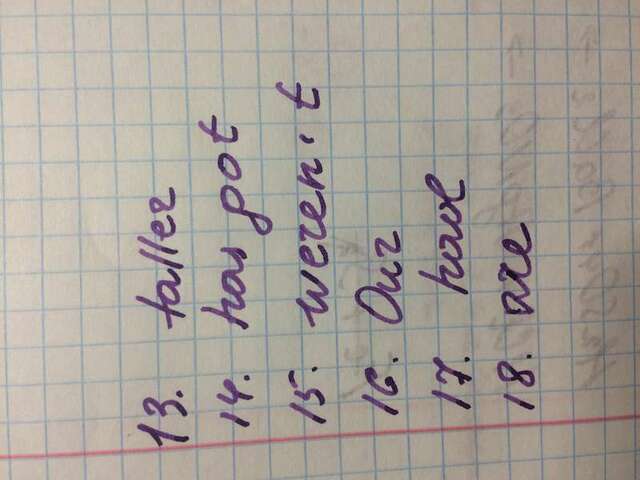 13. taller
14. has got
15. weren't
16. Our
17. have
18. are